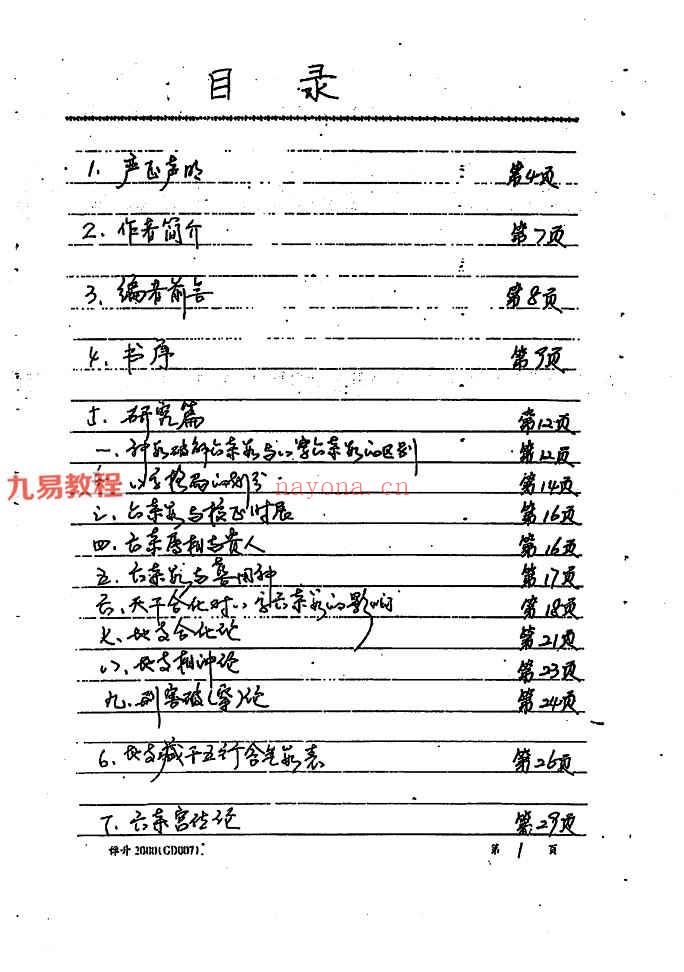 目 录
1. 严正声明 第4页
2. 作者简介 第7页
3. 编者前言 第8页
4. 书序 第9页
5. 研究篇 第12页
一、神数破解六亲数与八字六亲数的区别 第12页
八字格局的划分 第14页
三、六亲数与校正时辰 第16页
四、六亲属相与贵人 第16页
五、六亲数与喜用神 第17页
六、天干合化对八字六亲数的影响 第18页
七、地支合化论 第21页
八、地支相冲论 第23页
九、刑害破(穿)论 第24页
6. 地支藏干五行含气数表 第26页
7. 六亲宫位论 第29页
2000(GD007) 第 1 页
九易教程
nayona.cn